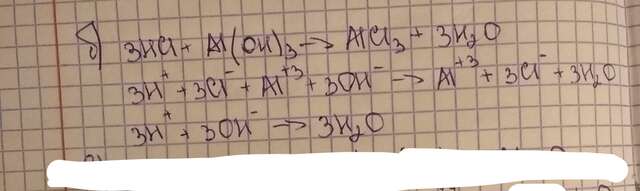 б) 3HCl + Al(OH)₃ → AlCl₃ + 3H₂O
3H⁺ + 3Cl⁻ + Al⁺³ + 3OH⁻ → Al⁺³ + 3Cl⁻ + 3H₂O
3H⁺ + 3OH⁻ → 3H₂O